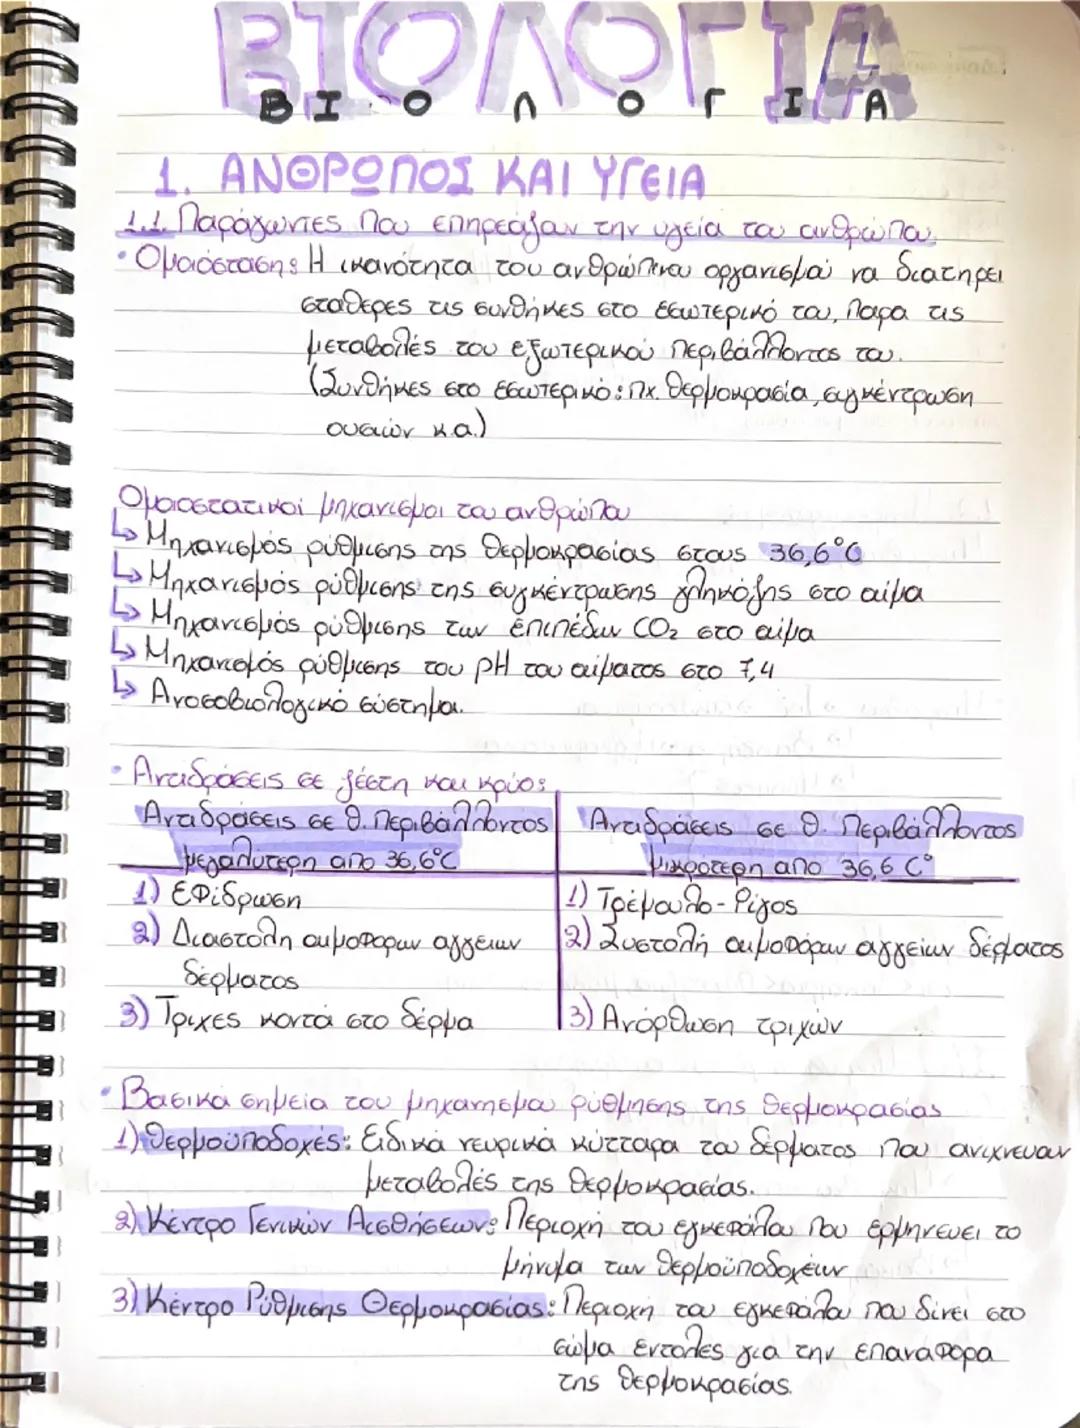 ΒΙΟΛΟΓΙΑ
ΒΙΟΛΟΓΙΑ
1. ΑΝΘΡΩΠΟΣ ΚΑΙ ΥΓΕΙΑ
1.1. Παράγωντες που επηρεάζουν την υγεία του ανθρώπου.
• Ομοιόσταση: Η ικανότητα του ανθρώπινου οργανισμού να διατηρεί
σταθερές τις συνθήκες στο εσωτερικό του, παρα τις
μεταβολές του εξωτερικού περιβάλλοντος του.
(Συνθήκες στο εσωτερικό: πχ. θερμοκρασία, συγκέντρωση
ουσιών κ.α.)
Ομοιοστατικοί μηχανισμοι του ανθρώπου
↳ Μηχανισμός ρύθμισης της θερμοκρασίας στους 36,6°C
↳ Μηχανισμός ρύθμισης της συγκέντρωσης γληκόζης στο αίμα
↳ Μηχανισμός ρύθμισης των επιπέδων CO₂ στο αίμα
↳ Μηχανισμός ρύθμισης του pH του αίματος στο 7,4
↳ Ανοσοβιολογικό σύστημα.
• Αντιδράσεις σε ζέστη και κρύο:
Αντιδράσεις σε θ. περιβάλλοντος
μεγαλύτερη απο 36,6°C
1) Εφίδρωση
2) Διαστολη αιμοφορων αγγειων
δέρματος
3) Τριχες κοντά στο δέρμα
Αντιδράσεις σε θ. περιβάλλοντος
μικρότερη απο 36,6 C°
1) Τρέμουλο - Ρίγος
2) Συστολή αιμοφόρων αγγείων δέρματος
3) Ανόρθωση τριχών
• Βασικά σημεία του μηχανισμού ρύθμησης της θερμοκρασίας
1) Θερμοϋποδοχές: Ειδικά νευρικά κύτταρα του δέρματος που ανιχνευουν
μεταβολές της θερμοκρασίας.
2) Κέντρο Γενικών Αισθήσεων: Περιοχή του εγκεφάλου που ερμηνευει το
μήνυμα των θερμοϋποδοχέων
3) Κέντρο Ρύθμισης Θερμοκρασίας: Περιοχη του εγκεφάλου που δίνει στο
σώμα εντολες για την επαναφορα
της θερμοκρασίας.